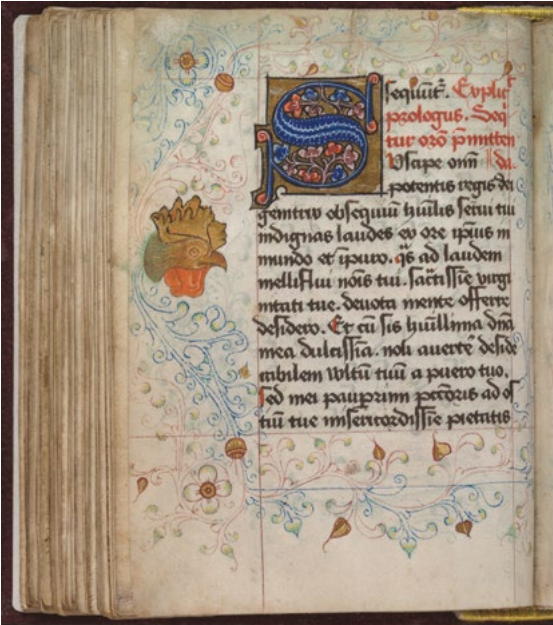 sequūt᷑. Explic᷑
prologus. Seq
tur orō p̄mitten
SUscipe om̄i da.
potentis regis dei
genitrix obsequiū hūilis serui tui
indignas laudes ex ore ip̄ius in
mundo et īpuro. q̄s ad laudem
melliflui nōis tui. sāctissīe virgi
nitati tue. deuota mente offerre
desidero. Et cū sis hūillima dn̄a
mea dulcissīa. noli auertē deside
rabilem vultū tuū a puero tuo.
Sed mei paup̄rimi pctōris ad os
tiū tue misericordissīe pietatis